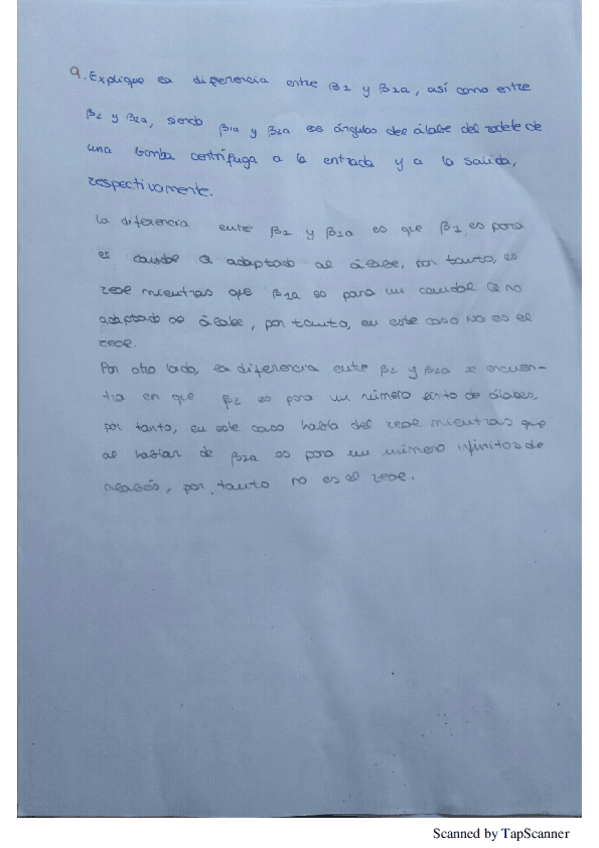 9. Explique la diferencia entre β1 y β1a, así como entre
β2 y β2a, siendo β1a y β2a los ángulos del álabe del rodete de
una bomba centrífuga a la entrada y a la salida,
respectivamente.
La diferencia entre β1 y β1a es que β1 es para
el caudal Q adaptado al álabe, por tanto, es
real mientras que β1a es para un caudal Q no
adaptado al álabe, por tanto, en este caso no es el
real.
Por otro lado, la diferencia entre β2 y β2a se encuen-
tra en que β2 es para un número finito de álabes,
por tanto, en este caso habla del real mientras que
al hablar de β2a es para un número infinitos de
álabes, por tanto no es el real.
Scanned by TapScanner